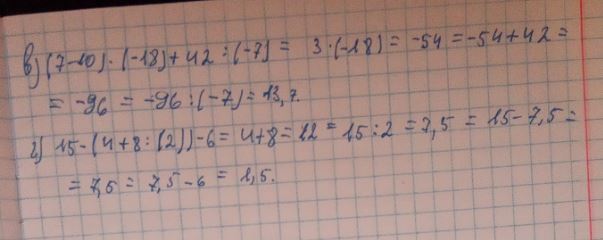 в) (7-10) · (-18) + 42 : (-7) = 3 · (-18) = -54 = -54 + 42 =
= -96 = -96 : (-7) = 13,7.
г) 15 - (4 + 8 : (2)) - 6 = 4 + 8 = 12 = 15 : 2 = 7,5 = 15 - 7,5 =
= 7,5 = 7,5 - 6 = 1,5.